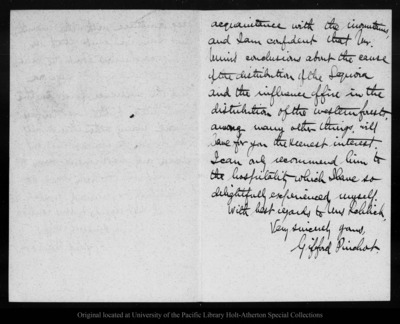 acquaintance with the mountains,
and I am confident that Mr.
Muir's conclusions about the cause
of the distribution of the Sequoia
and the influence of fire in the
distribution of the western forest,
among many other things, will
have for you the keenest interest.
I can only recommend him to
the hospitality which I have so
delightfully experienced myself.
With best regards to Mrs
Very sincerely yours,
Gifford Pinchot
Original located at University of the Pacific Library Holt-Atherton Special Collections